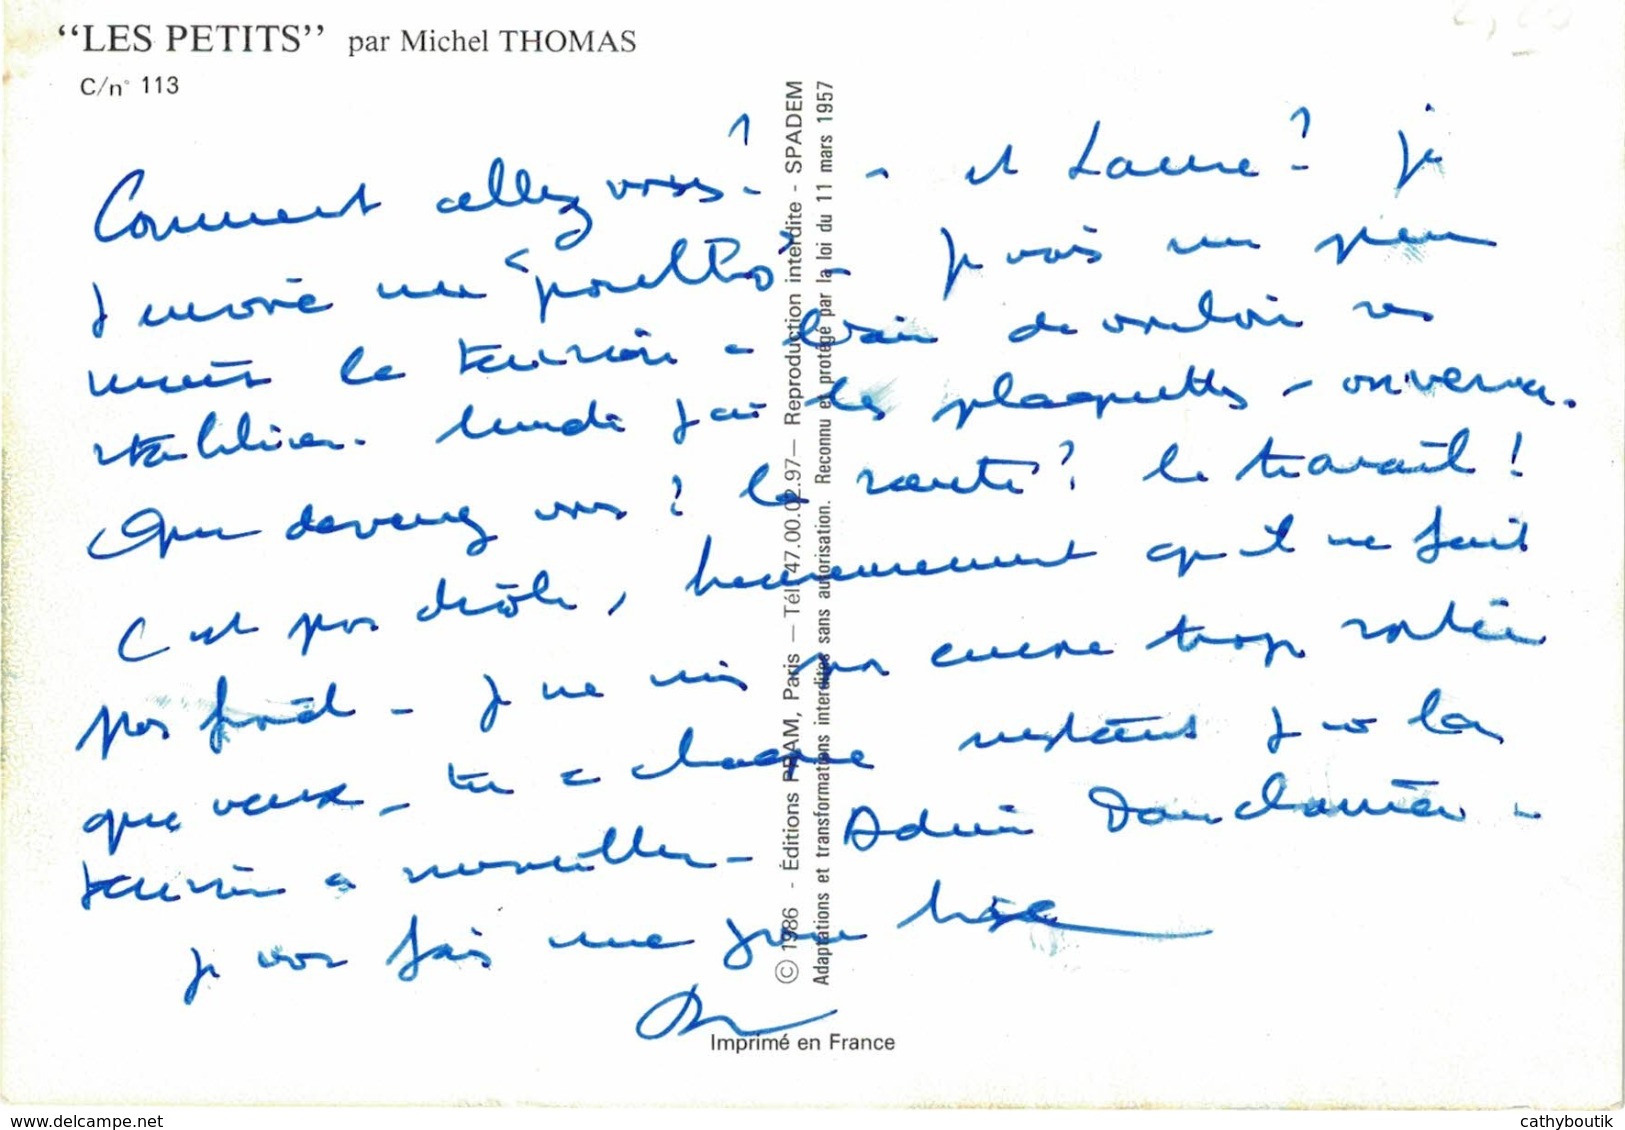 “LES PETITS” par Michel THOMAS
C/n° 113
Comment allez vous? - et Laure? je
t'envoie un "poulbo" - je vais un peu
mieux la tension - bien de vouloir se
stabiliser. lundi j'ai les plaquettes - on verra.
Que devenez vous? la santé? le travail!
C'est pas drôle, heureusement qu'il ne fait
pas froid - je ne suis pas encore trop
que veux-tu à chaque instant j'ai la
tension à surveiller -
je vous fais une grosse bise
© 1986 - Éditions PRAM, Paris — Tél. 47.00.02.97— Reproduction interdite - SPADEM
Adaptations et transformations interdites sans autorisation. Reconnu et protégé par la loi du 11 mars 1957
Imprimé en France
www.delcampe.net
cathyboutik